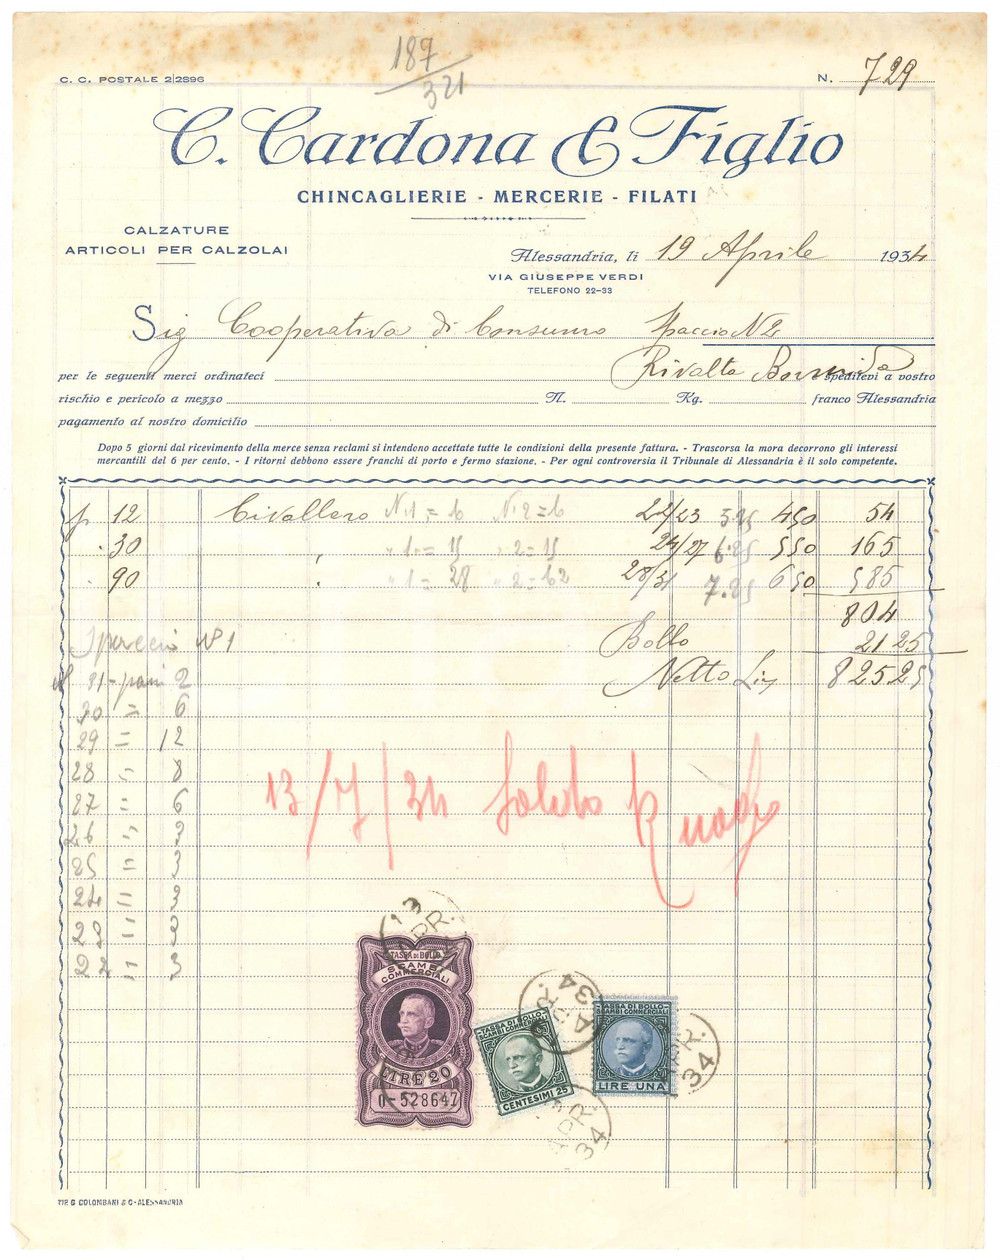 187
321
C. C. POSTALE 2|2896
N. 729
C. Cardona & Figlio
CHINCAGLIERIE - MERCERIE - FILATI
CALZATURE
ARTICOLI PER CALZOLAI
Alessandria, li 19 Aprile 1934
VIA GIUSEPPE VERDI
TELEFONO 22-33
Sig Cooperativa di Consumo Spaccio N 2
Rivalta Bormida
per le seguenti merci ordinateci speditevi a vostro
rischio e pericolo a mezzo N. Kg. franco Alessandria
pagamento al nostro domicilio
Dopo 5 giorni dal ricevimento della merce senza reclami si intendono accettate tutte le condizioni della presente fattura. - Trascorsa la mora decorrono gli interessi
mercantili del 6 per cento. - I ritorni debbono essere franchi di porto e fermo stazione. - Per ogni controversia il Tribunale di Alessandria è il solo competente.
p. 12 N. 1 = 6 N. 2 = 6 22/23 5.25 450 54
. 30 " 1 = 15 " 2 = 15 24/27 6.25 550 165
. 90 " 1 = 28 " 2 = 62 28/31 7.25 650 585
804
Spaccio N° 1 Bollo 21 25
N 31 - paia 2 Netto Lire 825 25
30 = 6
29 = 12
28 = 8
27 = 6
26 = 3
25 = 3
24 = 3
23 = 3
22 = 3
13/7/34 Saldo
13 APR.
TASSA DI BOLLO
SCAMBI
COMMERCIALI
LIRE 20
0-528647
TASSA DI BOLLO
SCAMBI COMMERCIALI
CENTESIMI 25
APR. 34
TASSA DI BOLLO
SCAMBI COMMERCIALI
LIRE UNA
APR. 34
APR. 34
TIP. G. COLOMBANI & C - ALESSANDRIA